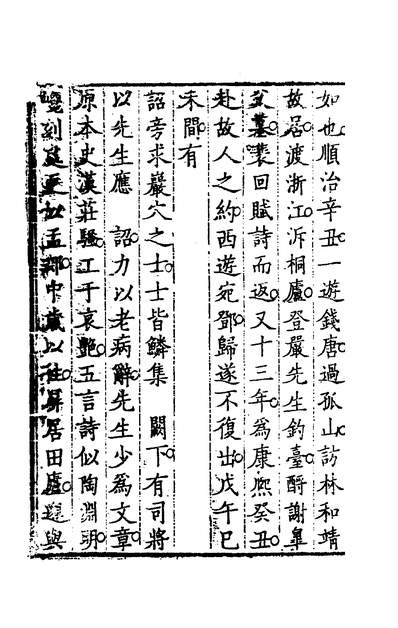 如也順治辛丑一遊錢唐過孤山訪林和靖
故居渡浙江泝桐廬登嚴先生釣臺酹謝皐
父墓裴回賦詩而返又十三年為康熙癸丑
赴故人之約西遊宛鄧歸遂不復出戊午己
未間有
詔旁求巖穴之士士皆鱗集　闕下有司將
以先生應　詔力以老病辭先生少為文章
原本史漢莊騷江于哀艷五言詩似陶淵明
刻更以孟郊中歲以往屏居田廬與